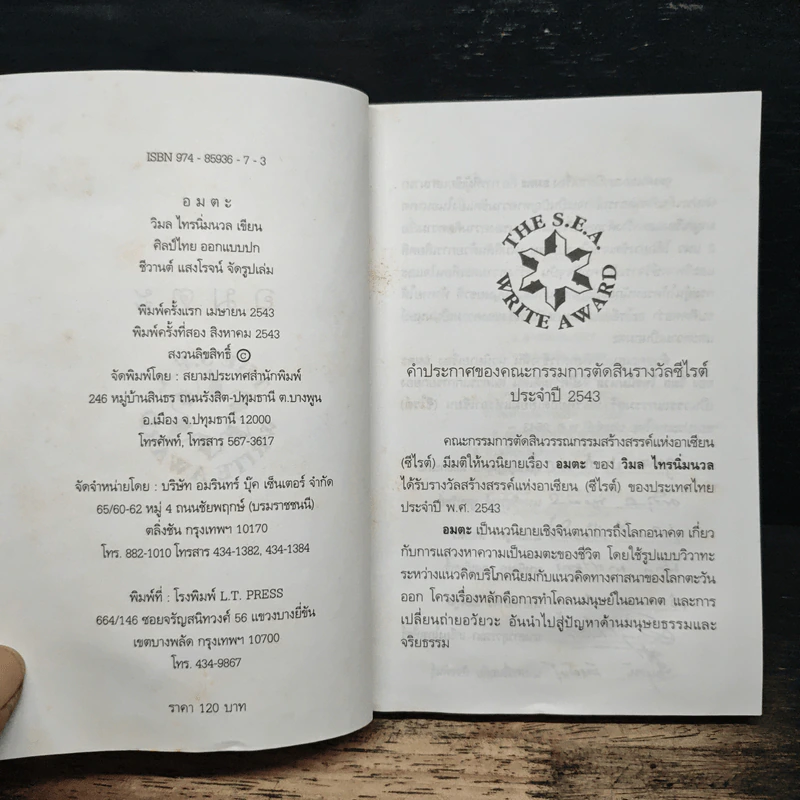 ISBN 974 - 85936 - 7 - 3
อ ม ต ะ
วิมล ไทรนิ่มนวล เขียน
ศิลป์ไทย ออกแบบปก
ชีวานต์ แสงโรจน์ จัดรูปเล่ม
พิมพ์ครั้งแรก เมษายน 2543
พิมพ์ครั้งที่สอง สิงหาคม 2543
สงวนลิขสิทธิ์ ©
จัดพิมพ์โดย : สยามประเทศสำนักพิมพ์
246 หมู่บ้านสินธร ถนนรังสิต-ปทุมธานี ต.บางพูน
อ.เมือง จ.ปทุมธานี 12000
โทรศัพท์, โทรสาร 567-3617
จัดจำหน่ายโดย : บริษัท อมรินทร์ บุ๊ค เซ็นเตอร์ จำกัด
65/60-62 หมู่ 4 ถนนชัยพฤกษ์ (บรมราชชนนี)
ตลิ่งชัน กรุงเทพฯ 10170
โทร. 882-1010 โทรสาร 434-1382, 434-1384
พิมพ์ที่ : โรงพิมพ์ L.T. PRESS
664/146 ซอยจรัญสนิทวงศ์ 56 แขวงบางยี่ขัน
เขตบางพลัด กรุงเทพฯ 10700
โทร. 434-9867
ราคา 120 บาท
THE S.E.A.
WRITE AWARD
คำประกาศของคณะกรรมการตัดสินรางวัลซีไรต์
ประจำปี 2543
คณะกรรมการตัดสินวรรณกรรมสร้างสรรค์แห่งอาเซียน
(ซีไรต์) มีมติให้นวนิยายเรื่อง อมตะ ของ วิมล ไทรนิ่มนวล
ได้รับรางวัลสร้างสรรค์แห่งอาเซียน (ซีไรต์) ของประเทศไทย
ประจำปี พ.ศ. 2543
อมตะ เป็นนวนิยายเชิงจินตนาการถึงโลกอนาคต เกี่ยว
กับการแสวงหาความเป็นอมตะของชีวิต โดยใช้รูปแบบวิวาทะ
ระหว่างแนวคิดบริโภคนิยมกับแนวคิดทางศาสนาของโลกตะวัน
ออก โครงเรื่องหลักคือการทำโคลนมนุษย์ในอนาคต และการ
เปลี่ยนถ่ายอวัยวะ อันนำไปสู่ปัญหาด้านมนุษยธรรมและ
จริยธรรม